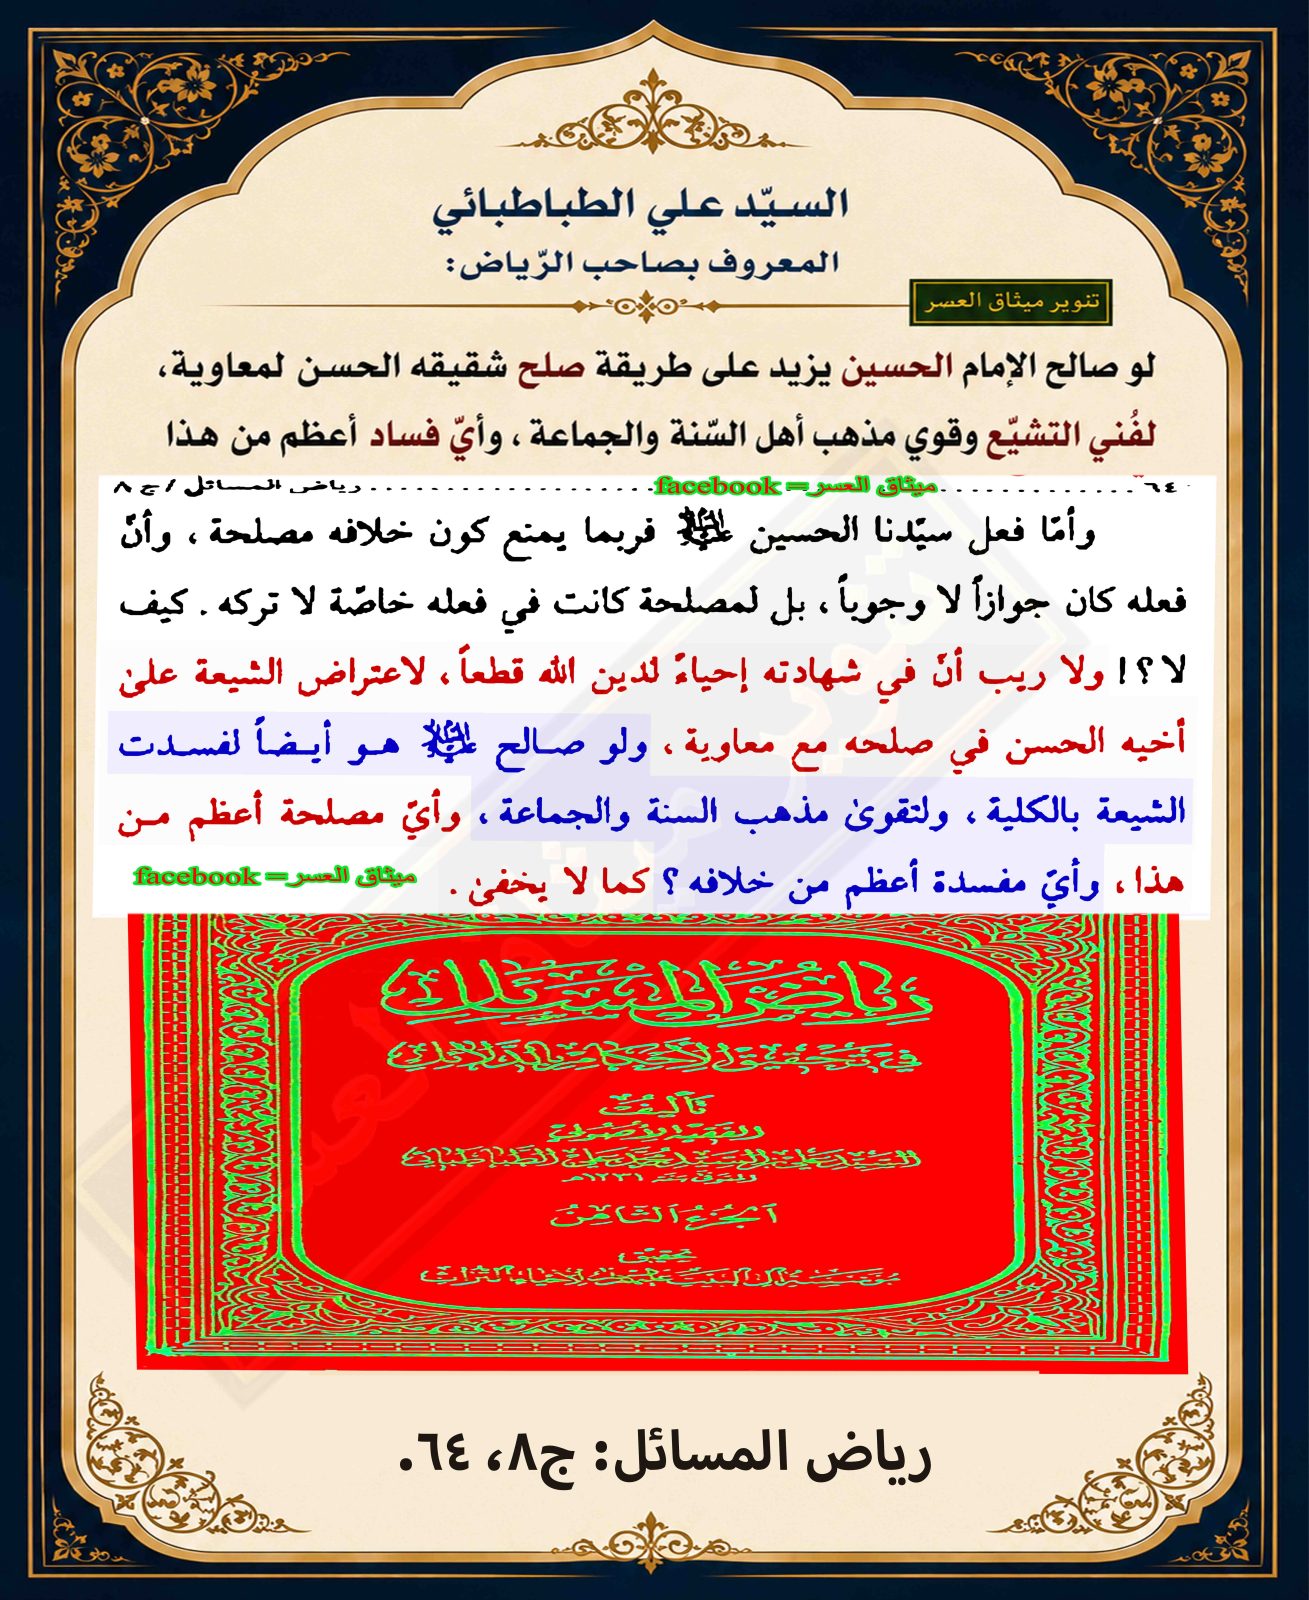 السيّد علي الطباطبائي
المعروف بصاحب الرّياض:
تنوير ميثاق العصر
لو صالح الإمام الحسين يزيد على طريقة صلح شقيقه الحسن لمعاوية،
لفُني التشيّع وقوي مذهب أهل السّنة والجماعة، وأيّ فساد أعظم من هذا
٦٤ ............ ميثاق العسر=facebook ............ رياض المسائل / ج ٨
وأمّا فعل سيّدنا الحسين عليه السلام فربما يمنع كون خلافه مصلحة، وأنّ
فعله كان جوازاً لا وجوباً، بل لمصلحة كانت في فعله خاصّة لا تركه. كيف
لا؟! ولا ريب أنّ في شهادته إحياءً لدين الله قطعاً، لاعتراض الشيعة على
أخيه الحسن في صلحه مع معاوية، ولو صالح عليه السلام هو أيضاً لفسدت
الشيعة بالكلية، ولتقوىٰ مذهب السنة والجماعة، وأيّ مصلحة أعظم من
هذا، وأيّ مفسدة أعظم من خلافه؟ كما لا يخفىٰ.
ميثاق العسر=facebook
رياض المسائل
في تحقيق الأحكام بالدلائل
تأليف
الفقيه الأصولي
السيد علي بن السيد محمد علي الطباطبائي
المتوفى سنة ١٢٣١هـ
الجزء الثامن
تحقيق
مؤسسة آل البيت عليهم السلام لإحياء التراث
رياض المسائل: ج٨، ٦٤.